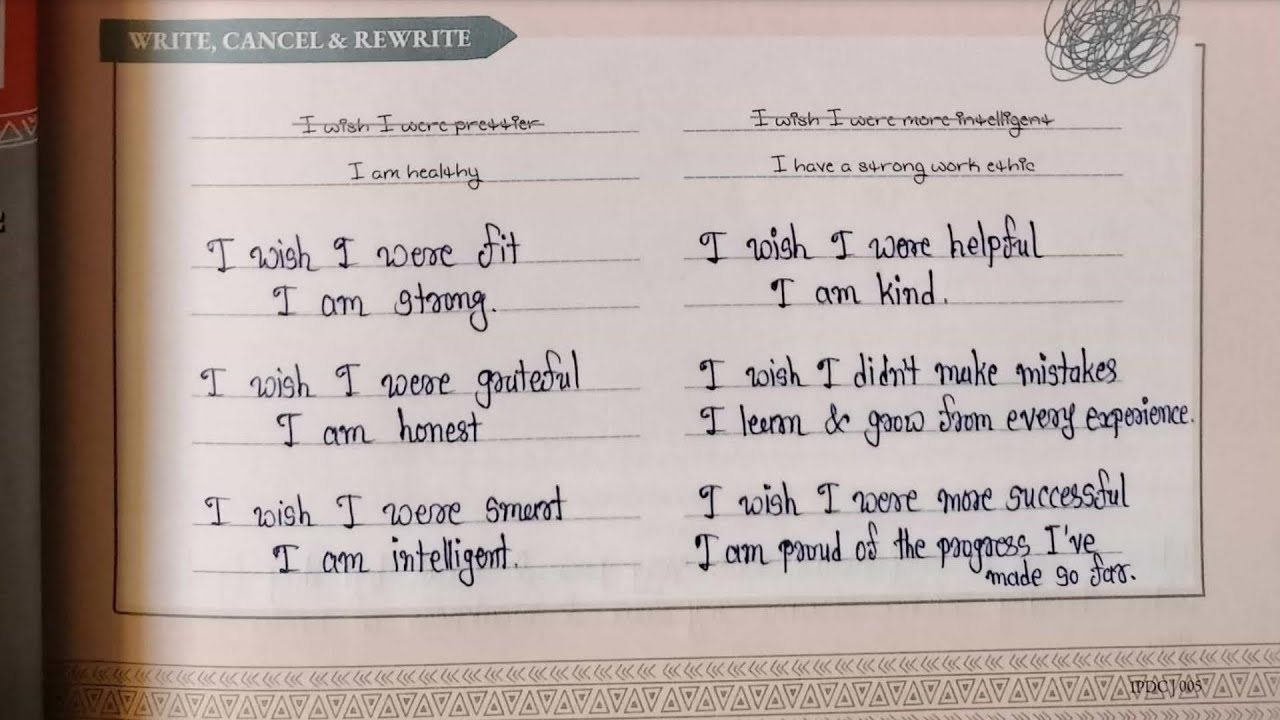 WRITE, CANCEL & REWRITE
I wish I were prettier
I am healthy
I wish I were fit
I am strong.
I wish I were grateful
I am honest
I wish I were smart
I am intelligent.
I wish I were more intelligent
I have a strong work ethic
I wish I were helpful
I am kind.
I wish I didn't make mistakes
I learn & grow from every experience.
I wish I were more successful
I am proud of the progress I've
made so far.
IPDC | 005